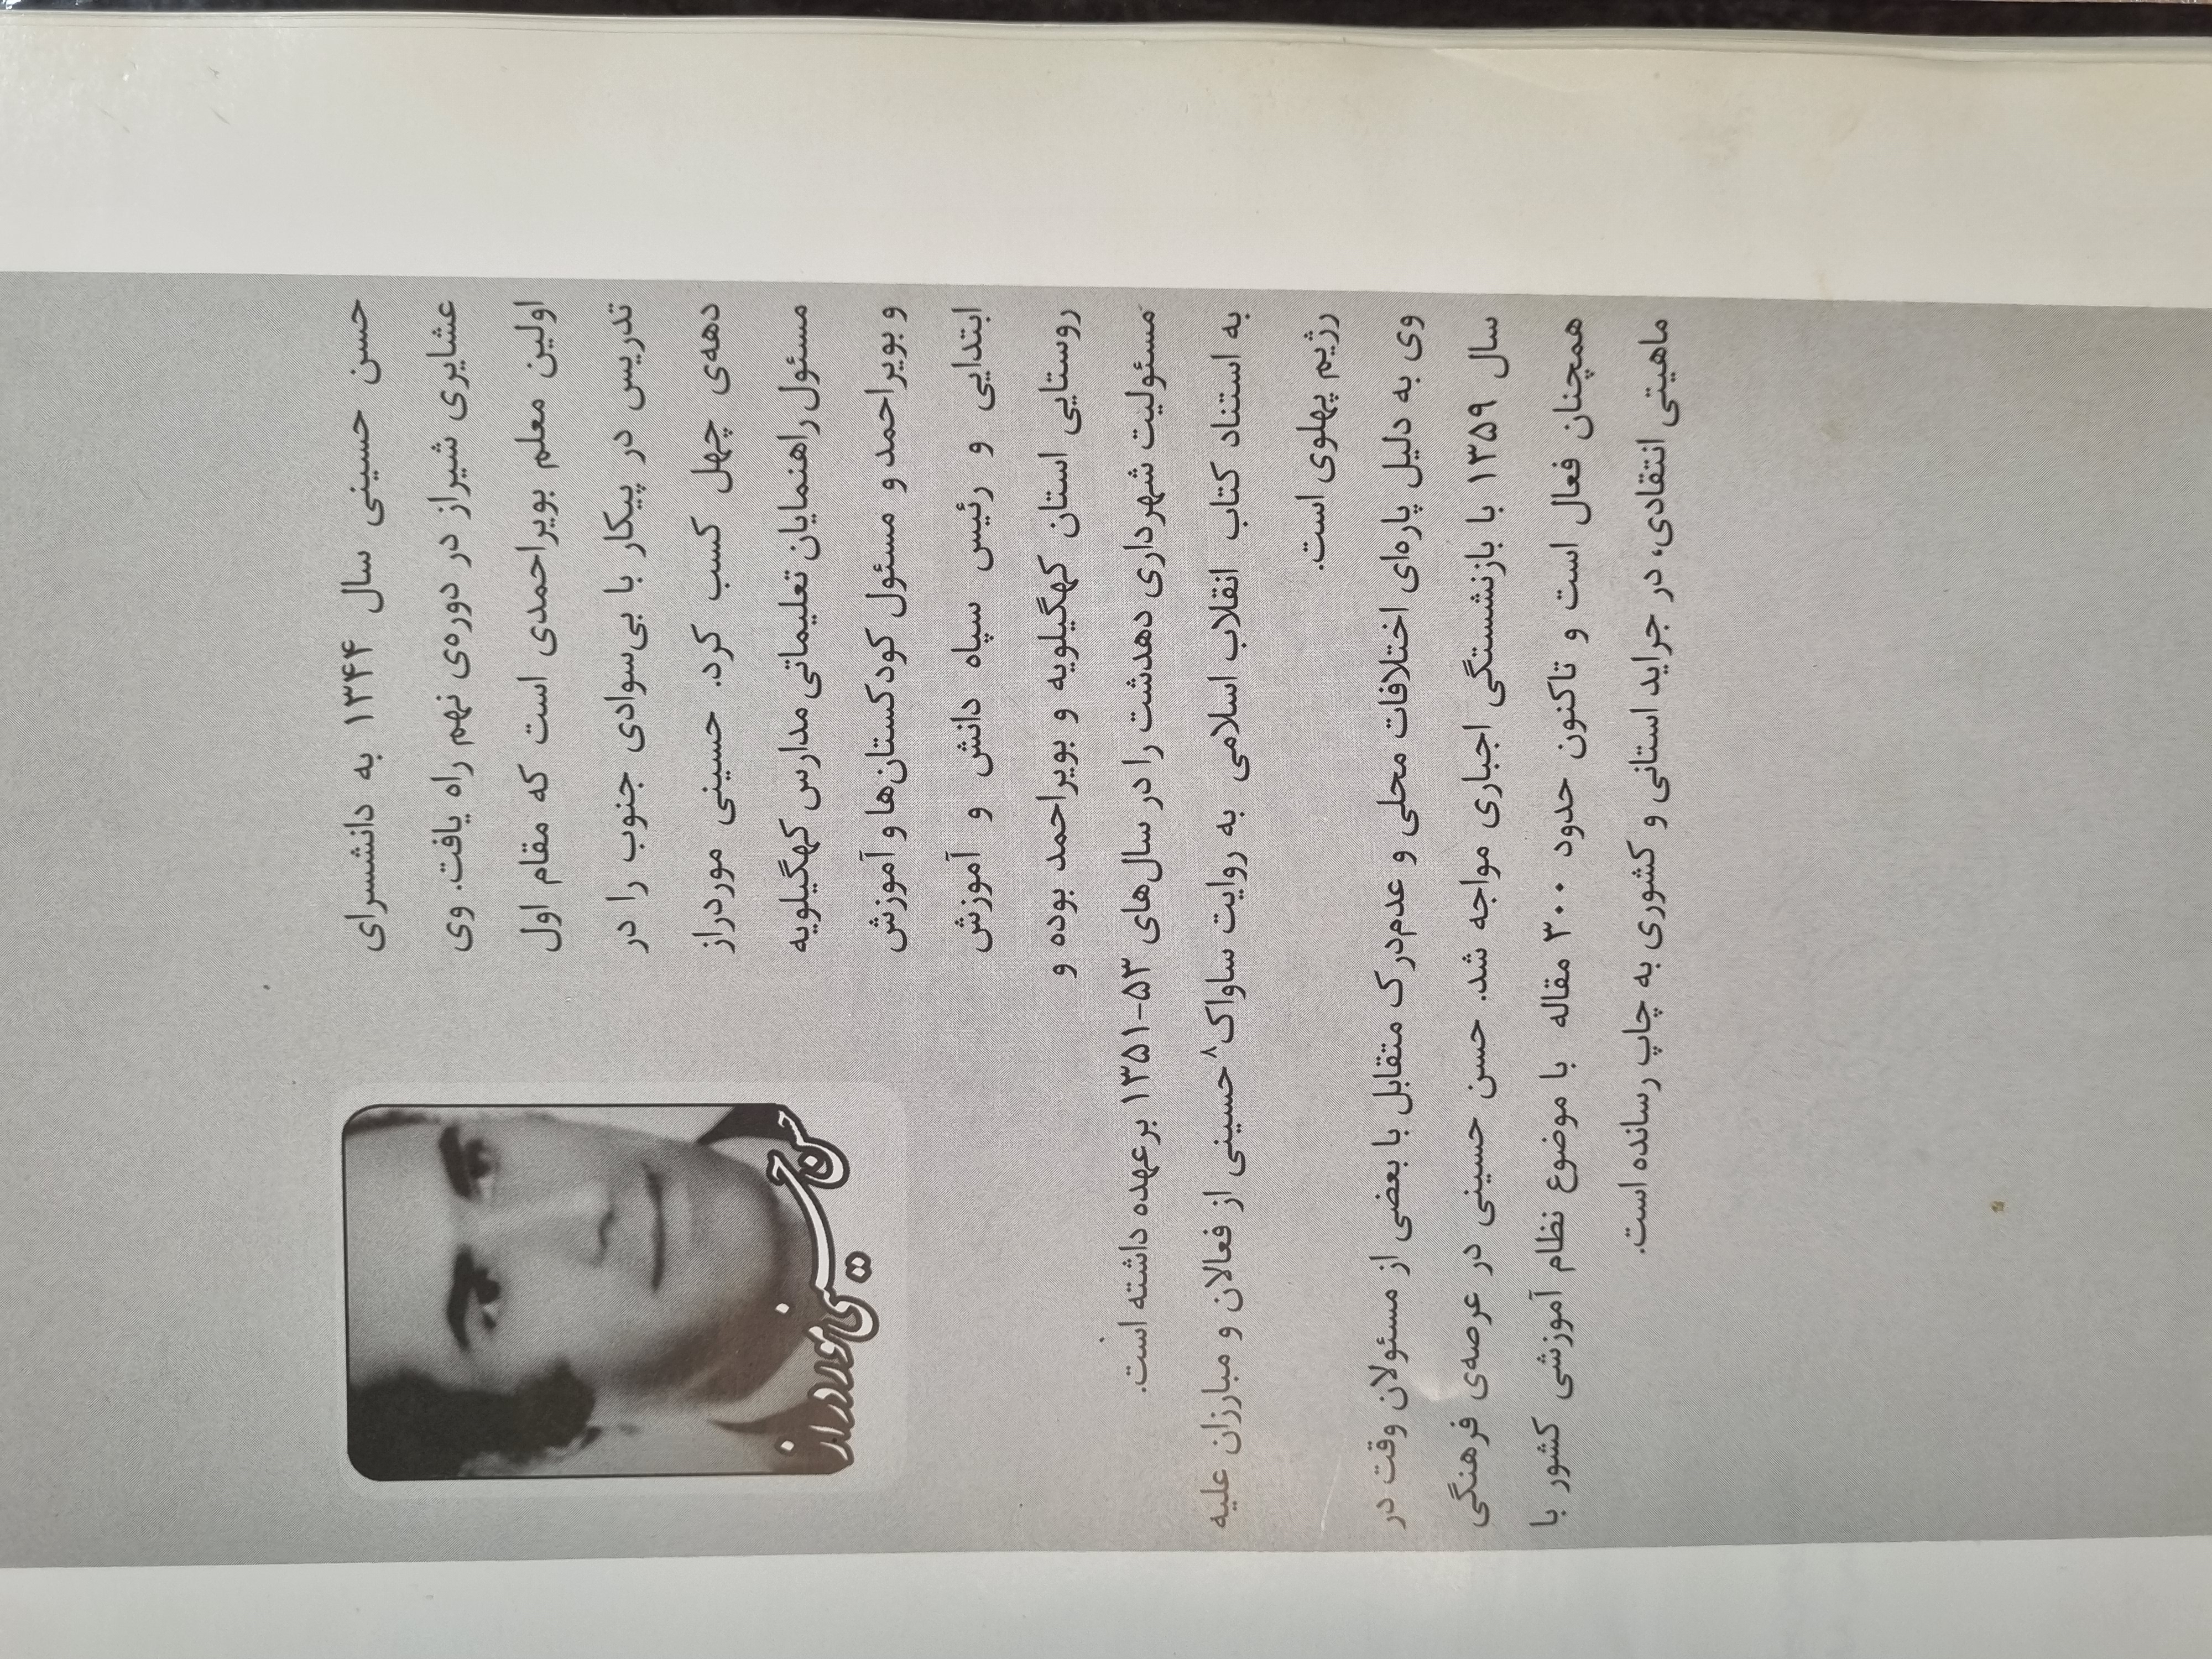 حسن حسینی سال ۱۳۴۴ به دانشسرای
عشایری شیراز در دوره‌ی نهم راه یافت. وی
اولین معلم بویراحمدی است که مقام اول
تدریس در پیکار با بی‌سوادی جنوب را در
دهه‌ی چهل کسب کرد. حسینی موردراز
مسئول راهنمایان تعلیماتی مدارس کهگیلویه
و بویراحمد و مسئول کودکستان‌ها و آموزش
ابتدایی و رئیس سپاه دانش و آموزش
روستایی استان کهگیلویه و بویراحمد بوده و
مسئولیت شهرداری دهدشت را در سال‌های ۵۳-۱۳۵۱ برعهده داشته است.
به استناد کتاب انقلاب اسلامی به روایت ساواک۸ حسینی از فعالان و مبارزان علیه
رژیم پهلوی است.
وی به دلیل پاره‌ای اختلافات محلی و عدم‌درک متقابل با بعضی از مسئولان وقت در
سال ۱۳۵۹ با بازنشستگی اجباری مواجه شد. حسن حسینی در عرصه‌ی فرهنگی
همچنان فعال است و تاکنون حدود ۳۰۰ مقاله با موضوع نظام آموزشی کشور با
ماهیتی انتقادی، در جراید استانی و کشوری به چاپ رسانده است.
حسن حسینی موردراز